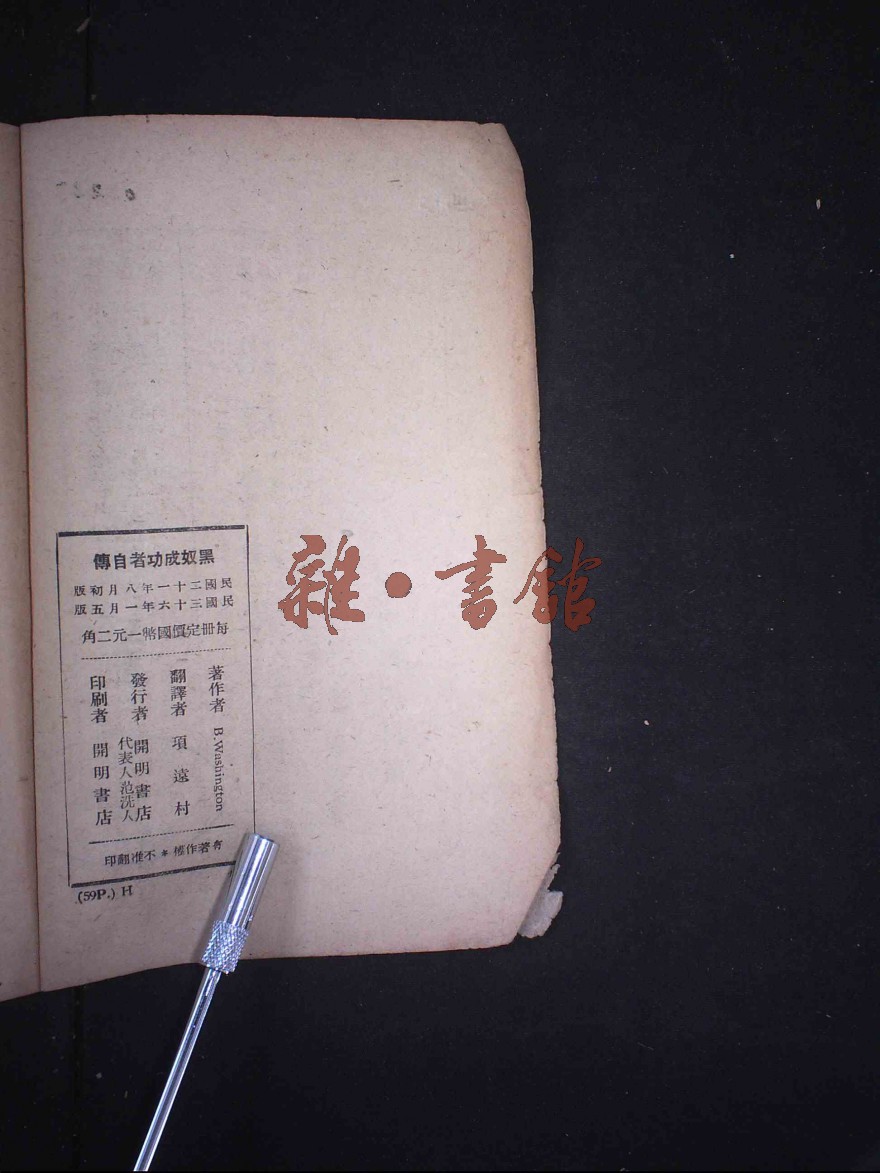 黑奴成功者自傳
民國二十一年八月初版
民國三十六年一月五版
每冊定價國幣一元二角
著作者 B. Washington
翻譯者 項遠村
發行者 開明書店
代表人范洗人
印刷者 開明書店
有著作權*不准翻印
(59P.) H
雜·書館